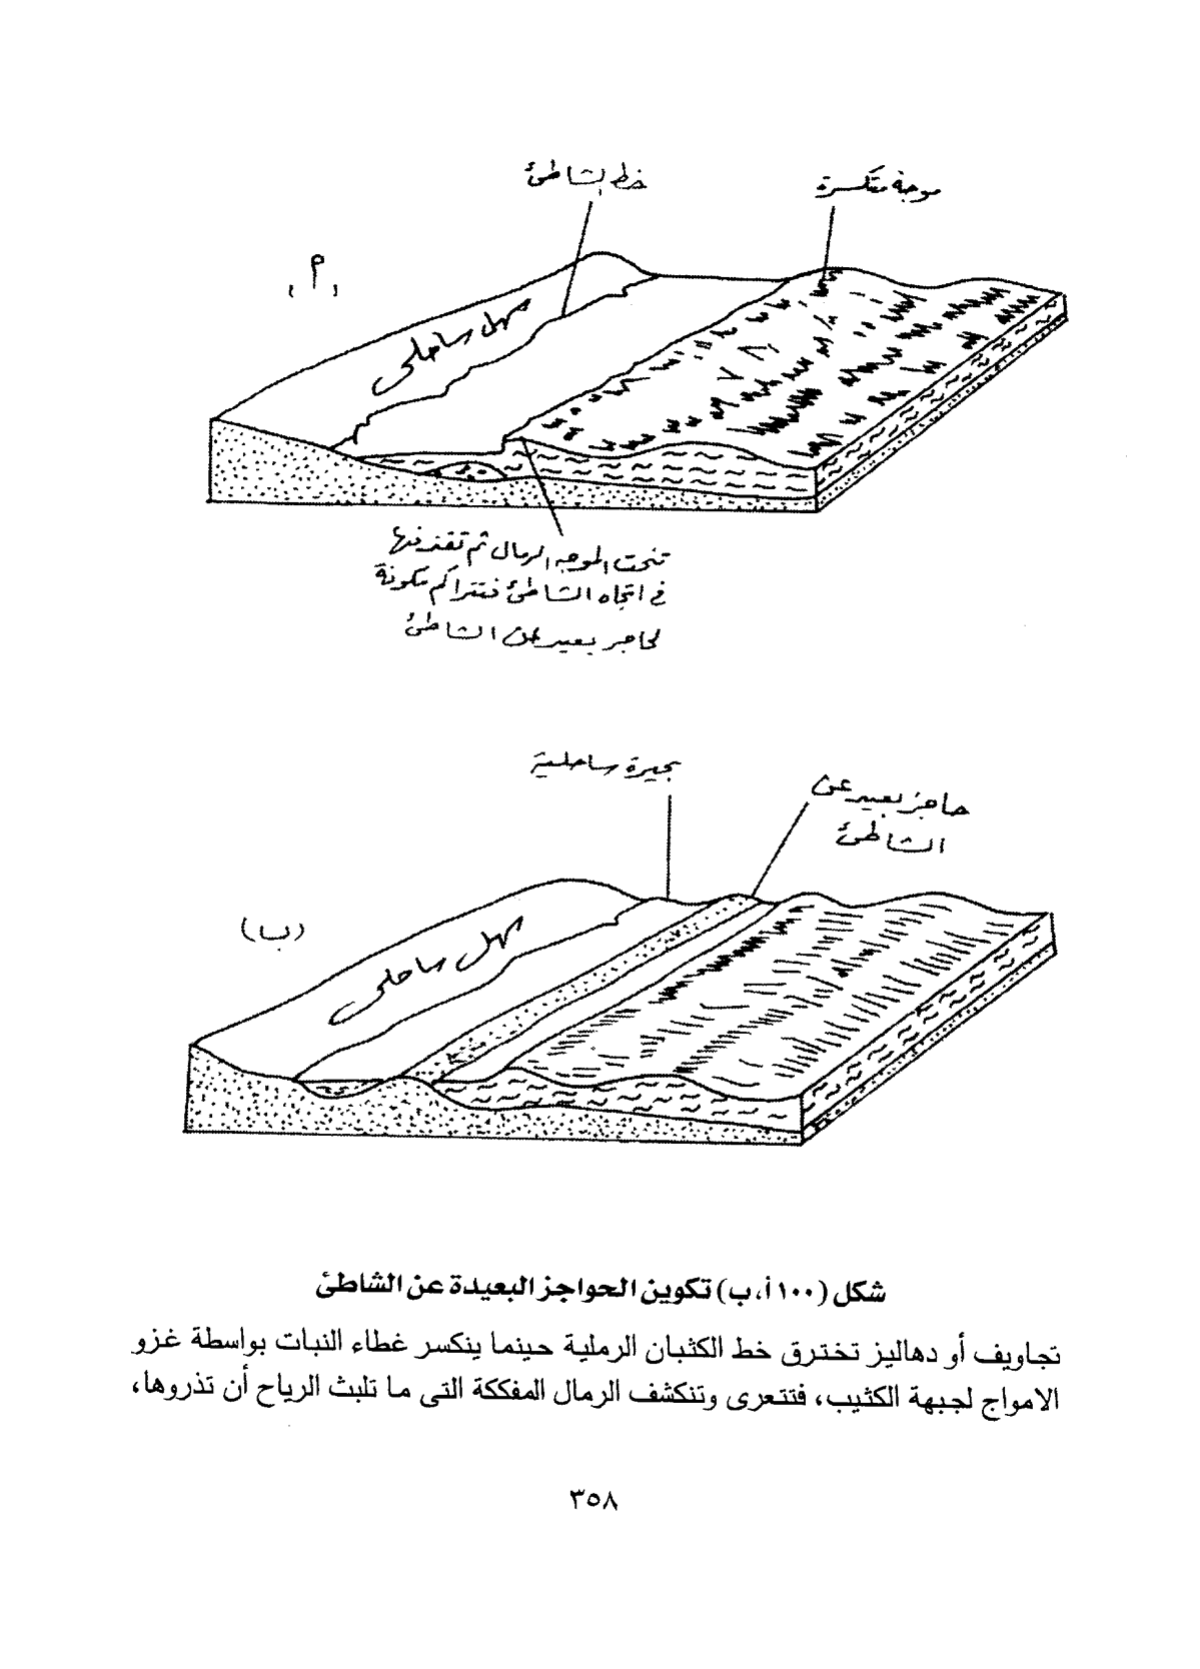 خط الشاطئ
موجة متكسرة
(أ)
سهل ساحلى
تنحت الموجه الرمال ثم تقذفها
فى اتجاه الشاطئ فتتراكم مكونة
لحاجز بعيد عن الشاطئ
بحيرة ساحلية
حاجز بعيد عن
الشاطئ
(ب)
سهل ساحلى
شكل (١٠٠ أ، ب) تكوين الحواجز البعيدة عن الشاطئ
تجاويف أو دهاليز تخترق خط الكثبان الرملية حينما ينكسر غطاء النبات بواسطة غزو
الامواج لجبهة الكثيب، فتتعرى وتنكشف الرمال المفككة التى ما تلبث الرياح أن تذروها،
٣٥٨